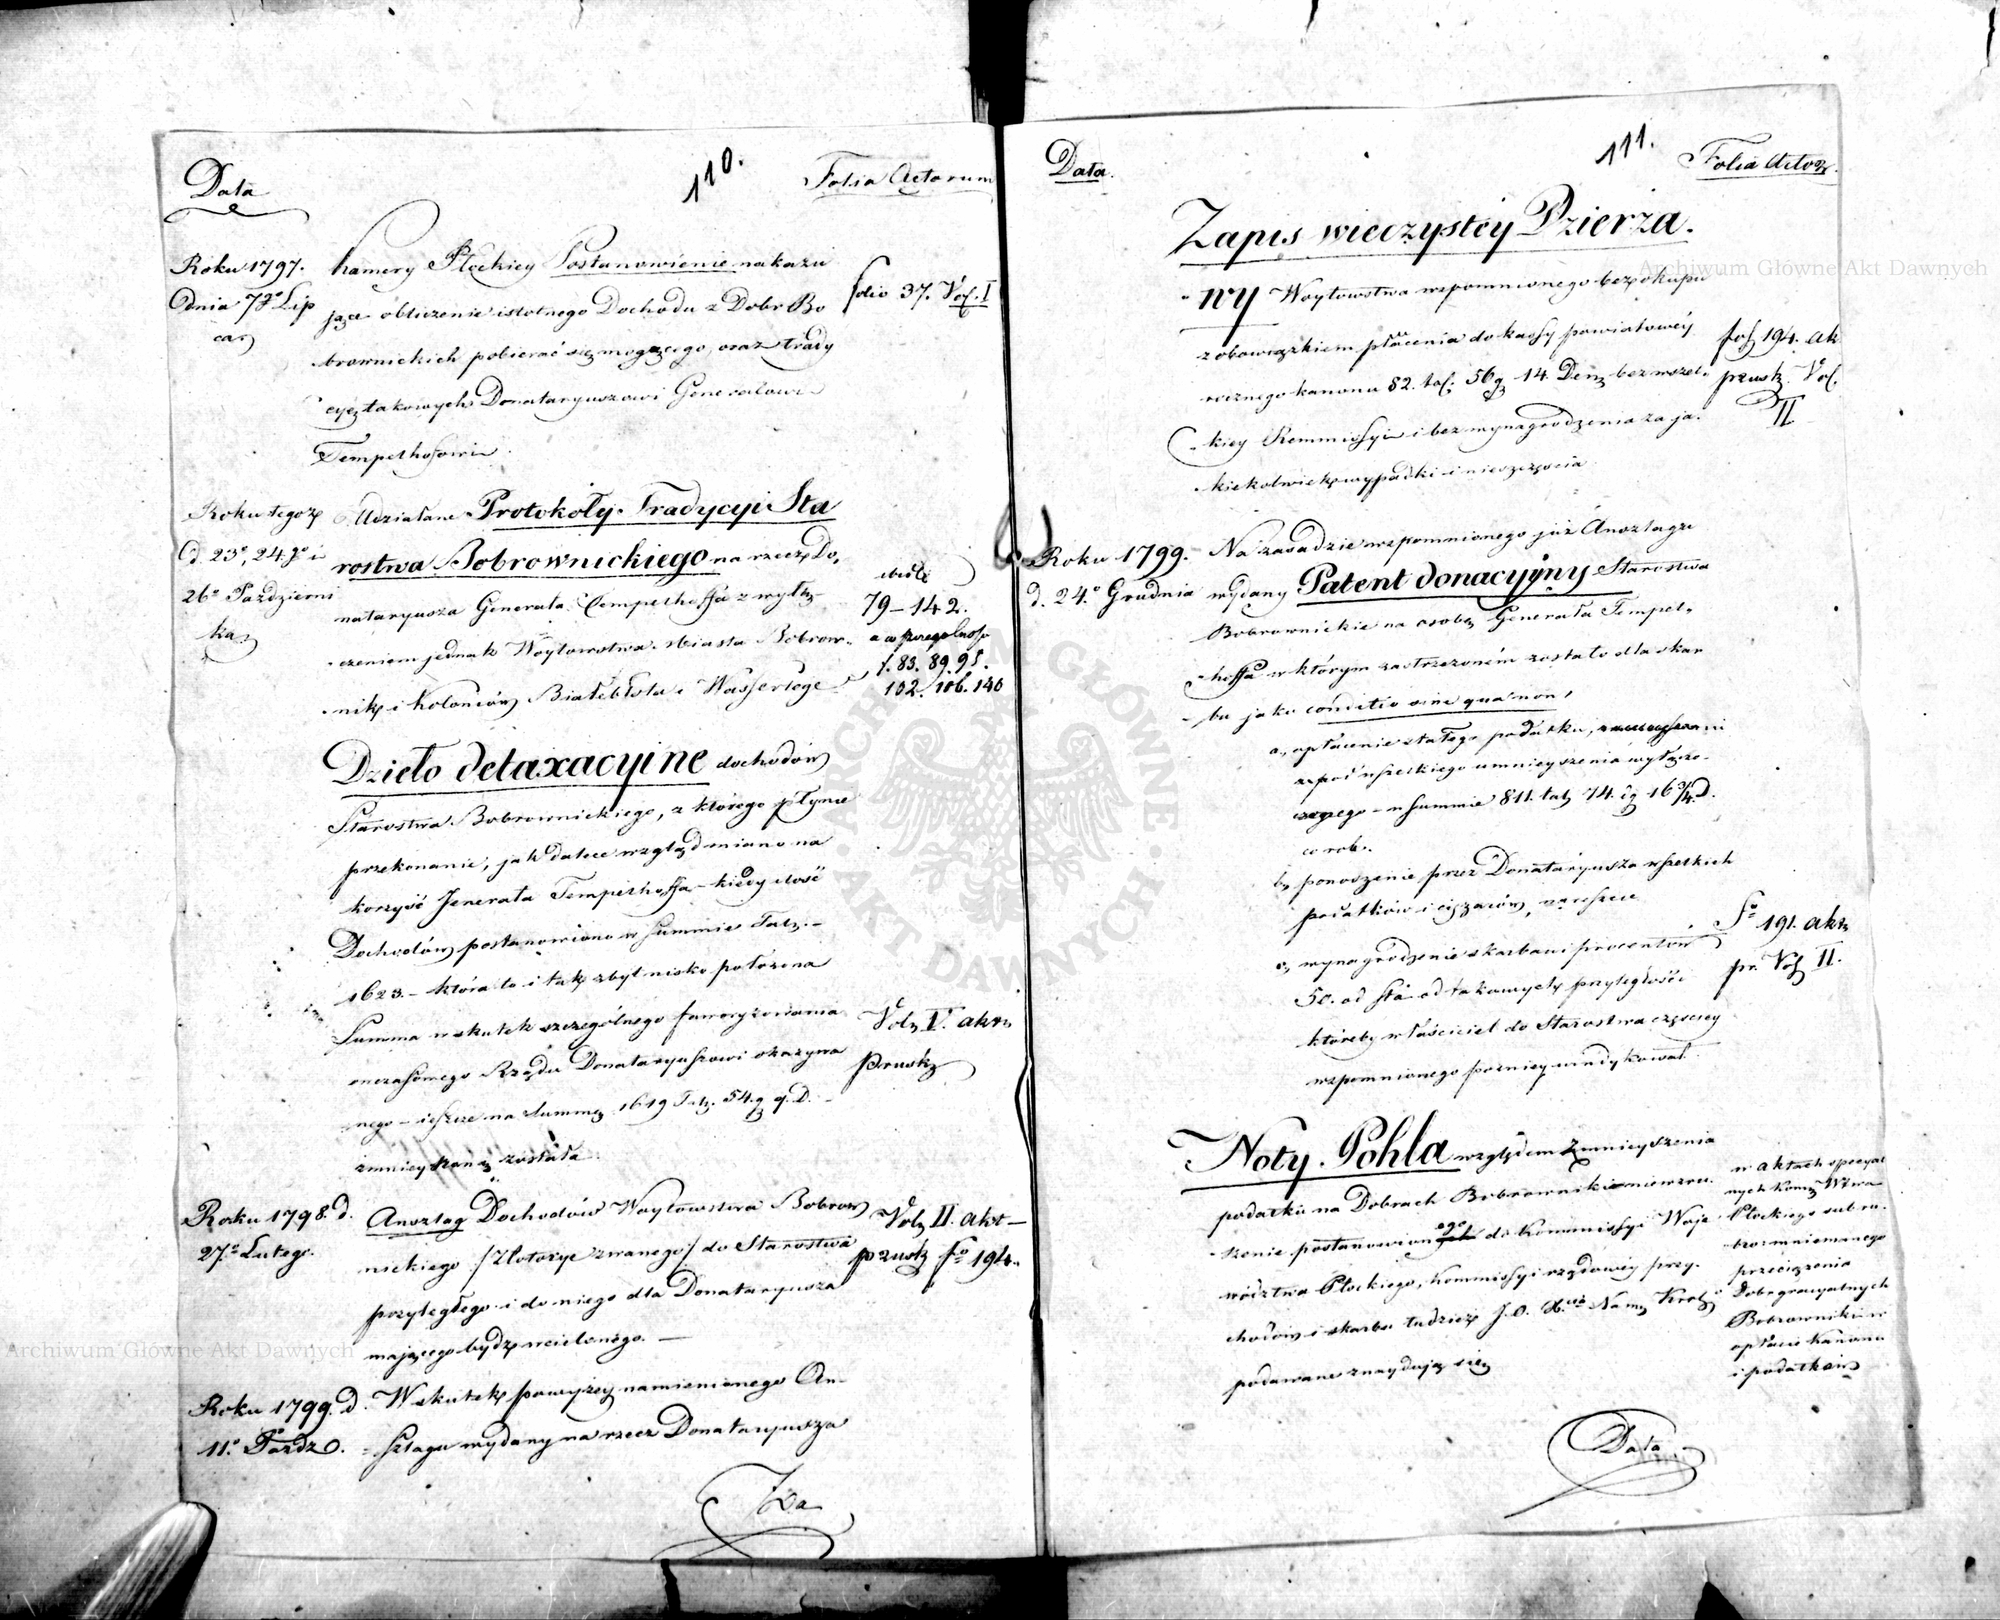 110.
Data
Folia Actorum
Roku 1797.
Dnia 7go Lip
ca
Kamery Płockiey Postanowienie nakazu
jące obliczenie istotnego Dochodu z Dobr Bo
brownickich pobierać się mogącego, oraz trady
cyę takowych Donataryuszowi Generałowi
Tempelhofowi
folio 37. Vol. I
Roku tegoż
d. 23o, 24go i
26o Pazdzierni
ka
Udziałane Protokoły Tradycyi Sta
rostwa Bobrownickiego na rzecz Do,
nataryusza Generała Tempelhoffa z wyłą
czeniem jednak Woytowstwa Miasta Bobrow,
nik i Koloniów Białebłota i Wasserlege
79 – 142.
a w szczególności
f. 83. 89. 95.
102. 106. 140
Dzieło detaxacyine dochodów
Starostwa Bobrownickiego, z którego płynie
przekonanie, jak dalece wzgląd miano na
korzyść Jenerała Tempelhoffa – kiedy ilość
Dochodów postanowiono w Summie Tal. –
1623. – która to i tak zbyt nisko położona
Summa w skutek szczególnego faworyzowania
onczasowego Rządu Donataryuszowi okazywa
nego – ieszcze na Summę 1619 Tal. 54 g 9. D. –
zmnieyszoną została
Vol. V. aktów
Prusk
Roku 1798. d.
27o Lutego.
Anszlag Dochodów Woytowstwa Bobrow
nickiego /Złotorye zwanego/ do Starostwa
przyległego i do niego dla Donataryusza
mającego bydź wcielonego. —
Vol. II. akt –
prusk fo 194.
Roku 1799. d.
11o Pazdz.
W skutek powyżey namienionego An-
szlagu wydany na rzecz Donataryusza
Za
111.
Data.
Folia Actor.
Zapis wieczystey Dzierża.
wy Woytowstwa wspomnionego bez okupu
z obowiązkiem płacenia do kassy powiatowéy
rocznego kanonu 82. tal. 56 g 14. Den. bez wszel.
kiey Remmissyi i bez wynagrodzenia za ja.
kiekolwiek wypadki i nieszczęścia
fol 194. ak
prusk. Vol.
II
Roku 1799.
d. 24o Grudnia
Na zasadzie wspomnionego już Anszlagu
wydany Patent donacyyny Starostwa
Bobrownickie na osobę Generała Tempel,
hoffa w którym zastrzeżoném zostało dla skar
bu jako conditio sine qua non,
a, opłacenie stałego podatku,
z pod wszelkiego umnieyszenia wyłącze.
– w Summie 811. tal. 74. g 16 3/4 d.
co rok.
b, ponoszenie przez Donataryusza wszelkich
podatków i ciężarów, nareszcie
c, wynagrodzenie skarbowi procentów
50. od sta od takowych przyległości
któreby właściciel do Starostwa częściey
wspomnionego pozniey windykował.
fo 191. akt
pr. Vol. II.
Noty Pohla względem zmnieyszenia
podatku na Dobrach Bobrowniki niewzru.
szenie postanowionego do Kommissyi Woje
wództwa Płockiego, Kommissyi rządowéy przy.
chodów i skarbu tudzież J. O. Xcia Nam. Król.
podawane znaydują się
w aktach specyal
nych Kom. Wtwa
Płockiego sub ru.
bro mniemanego
przeciążenia
Dobr gracyalnych
Bobrowniki w
opłacie kanonu
i podatków
Data
Archiwum Główne Akt Dawnych
Archiwum Główne Akt Dawnych
ARCHIWUM GŁÓWNE · AKT DAWNYCH ·